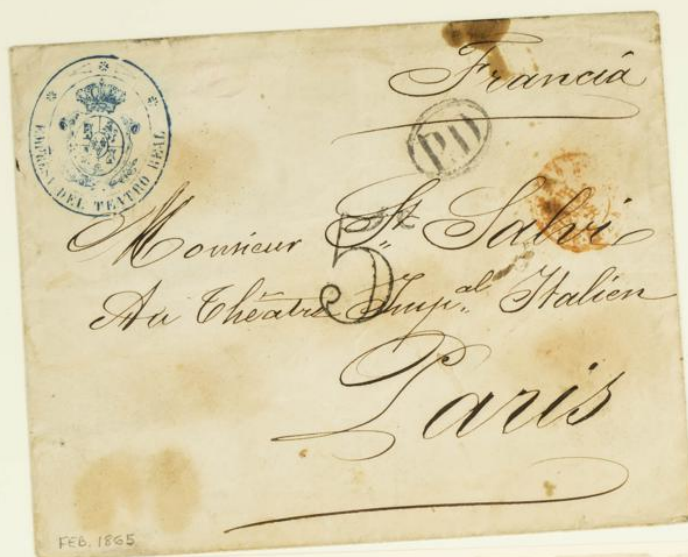 Franciá
EMPRESA DEL TEATRO REAL
PD
Monsieur St. Salvi
5
Au Théatre Imp.al Italien
Paris
FEB. 1865